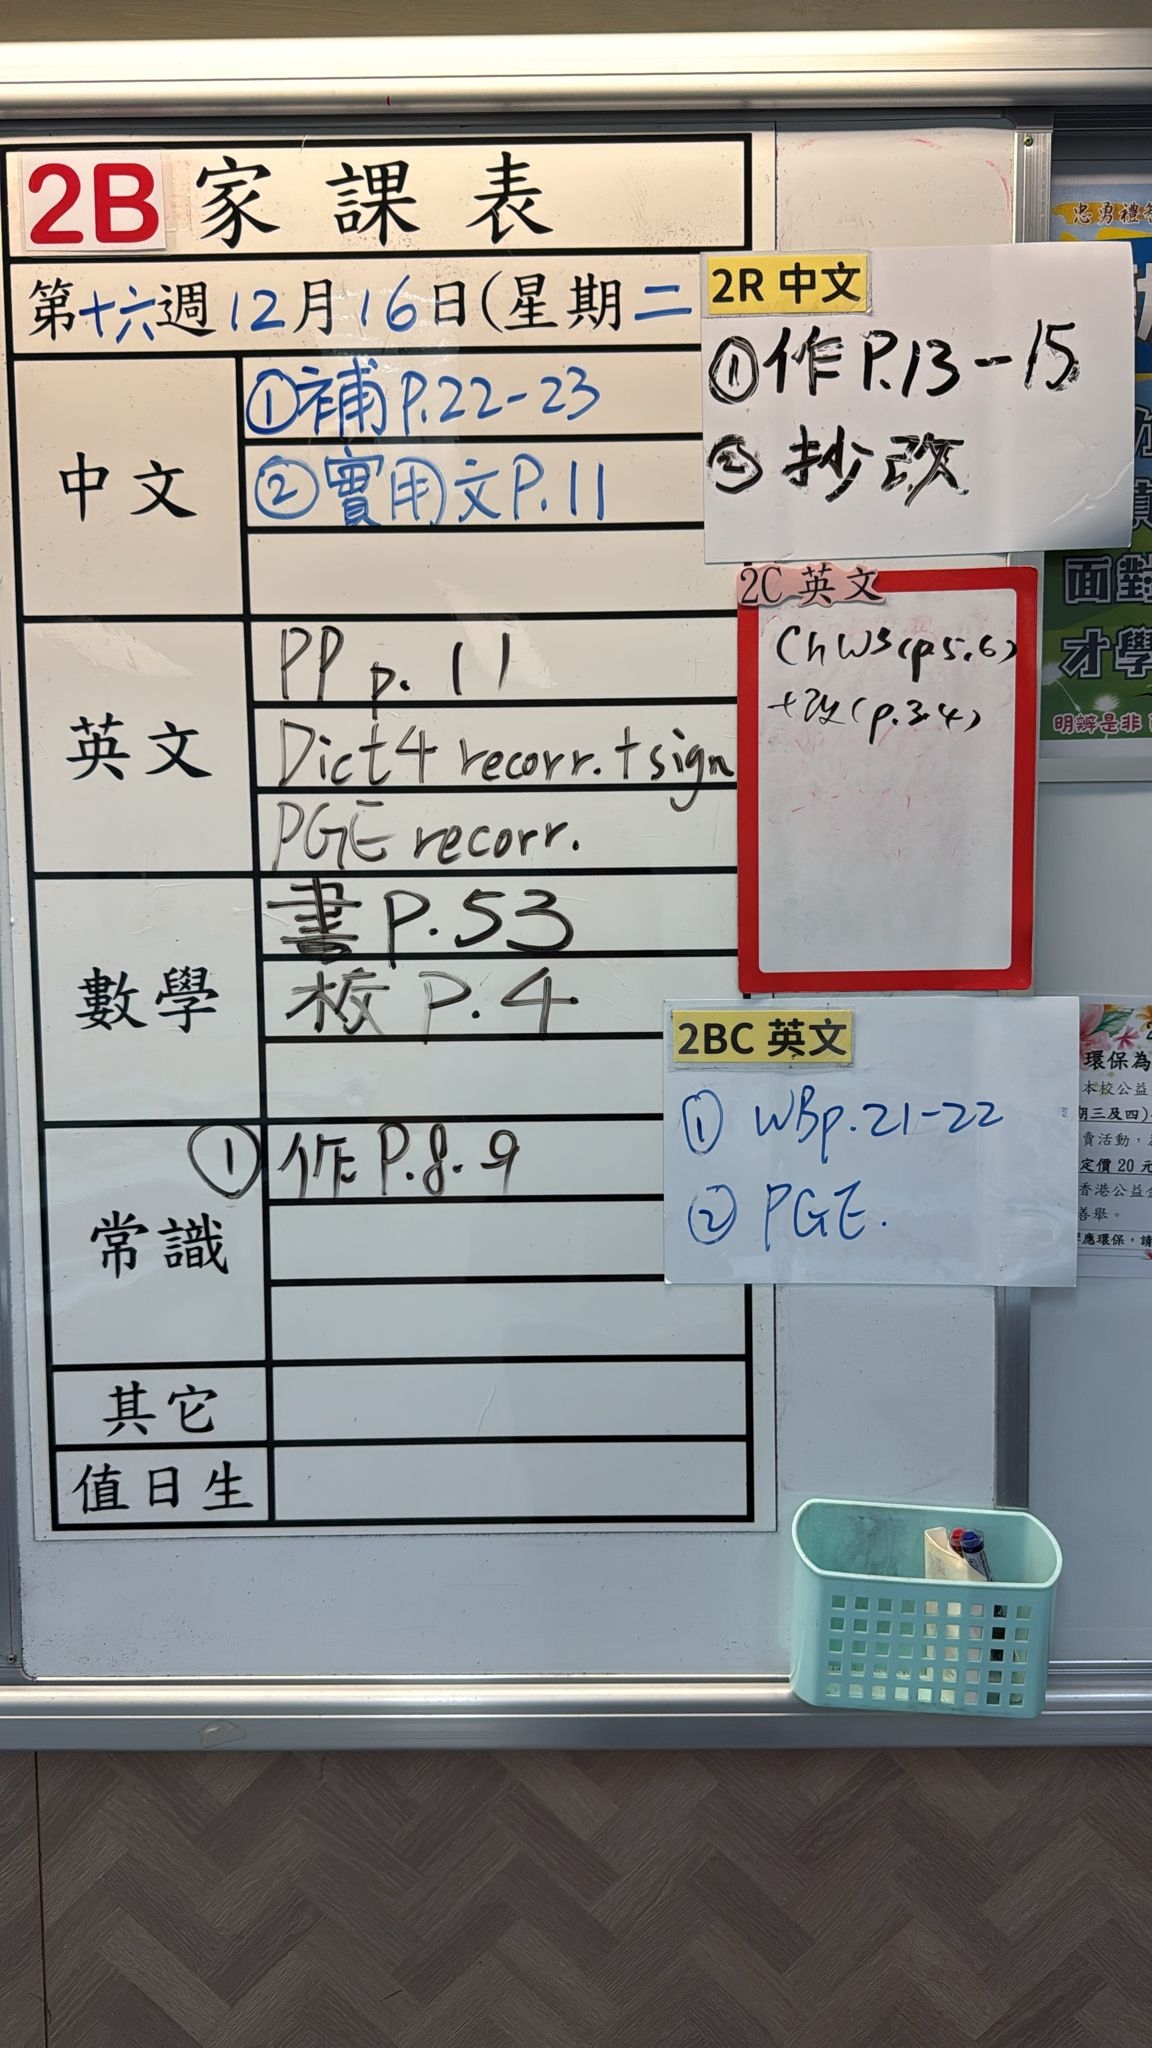 2B 家課表
第十六週12月16日(星期二
中文
①補P.22-23
②實用文P.11
英文
PP p. 11
Dict4 recorr.+sign
PGE recorr.
數學
書 P.53
校 P.4
常識
① 作 P.8.9
其它
值日生
2R 中文
①作P.13-15
②抄改
2C 英文
Ch WS(p.5.6)
+改(p.3.4)
2BC 英文
① WBp.21-22
② PGE.
忠勇禮
面對
才學
明辨是非
環保為
本校公益
期三及四)
賣活動，
定價 20 元
香港公益金
善舉。
應環保，請